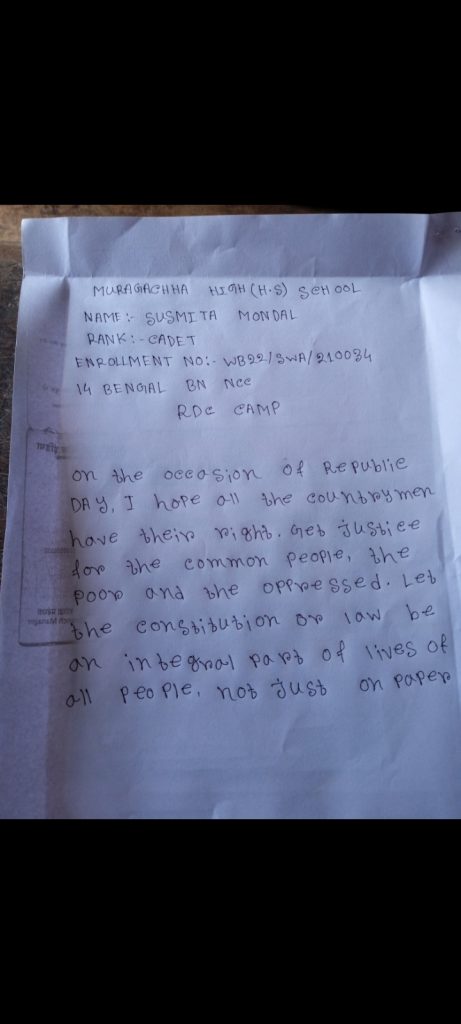 MURAGACHHA HIGH (H.S) SCHOOL
NAME :- SUSMITA MONDAL
RANK :- CADET
ENROLLMENT NO:- WB22/SWA/210034
14 BENGAL BN NCC
RDC CAMP
on the occasion of Republic
DAY, I hope all the countrymen
have their right. Get justice
for the common people, the
poor and the oppressed. Let
the constitution or law be
an integral part of lives of
all people, not just on paper